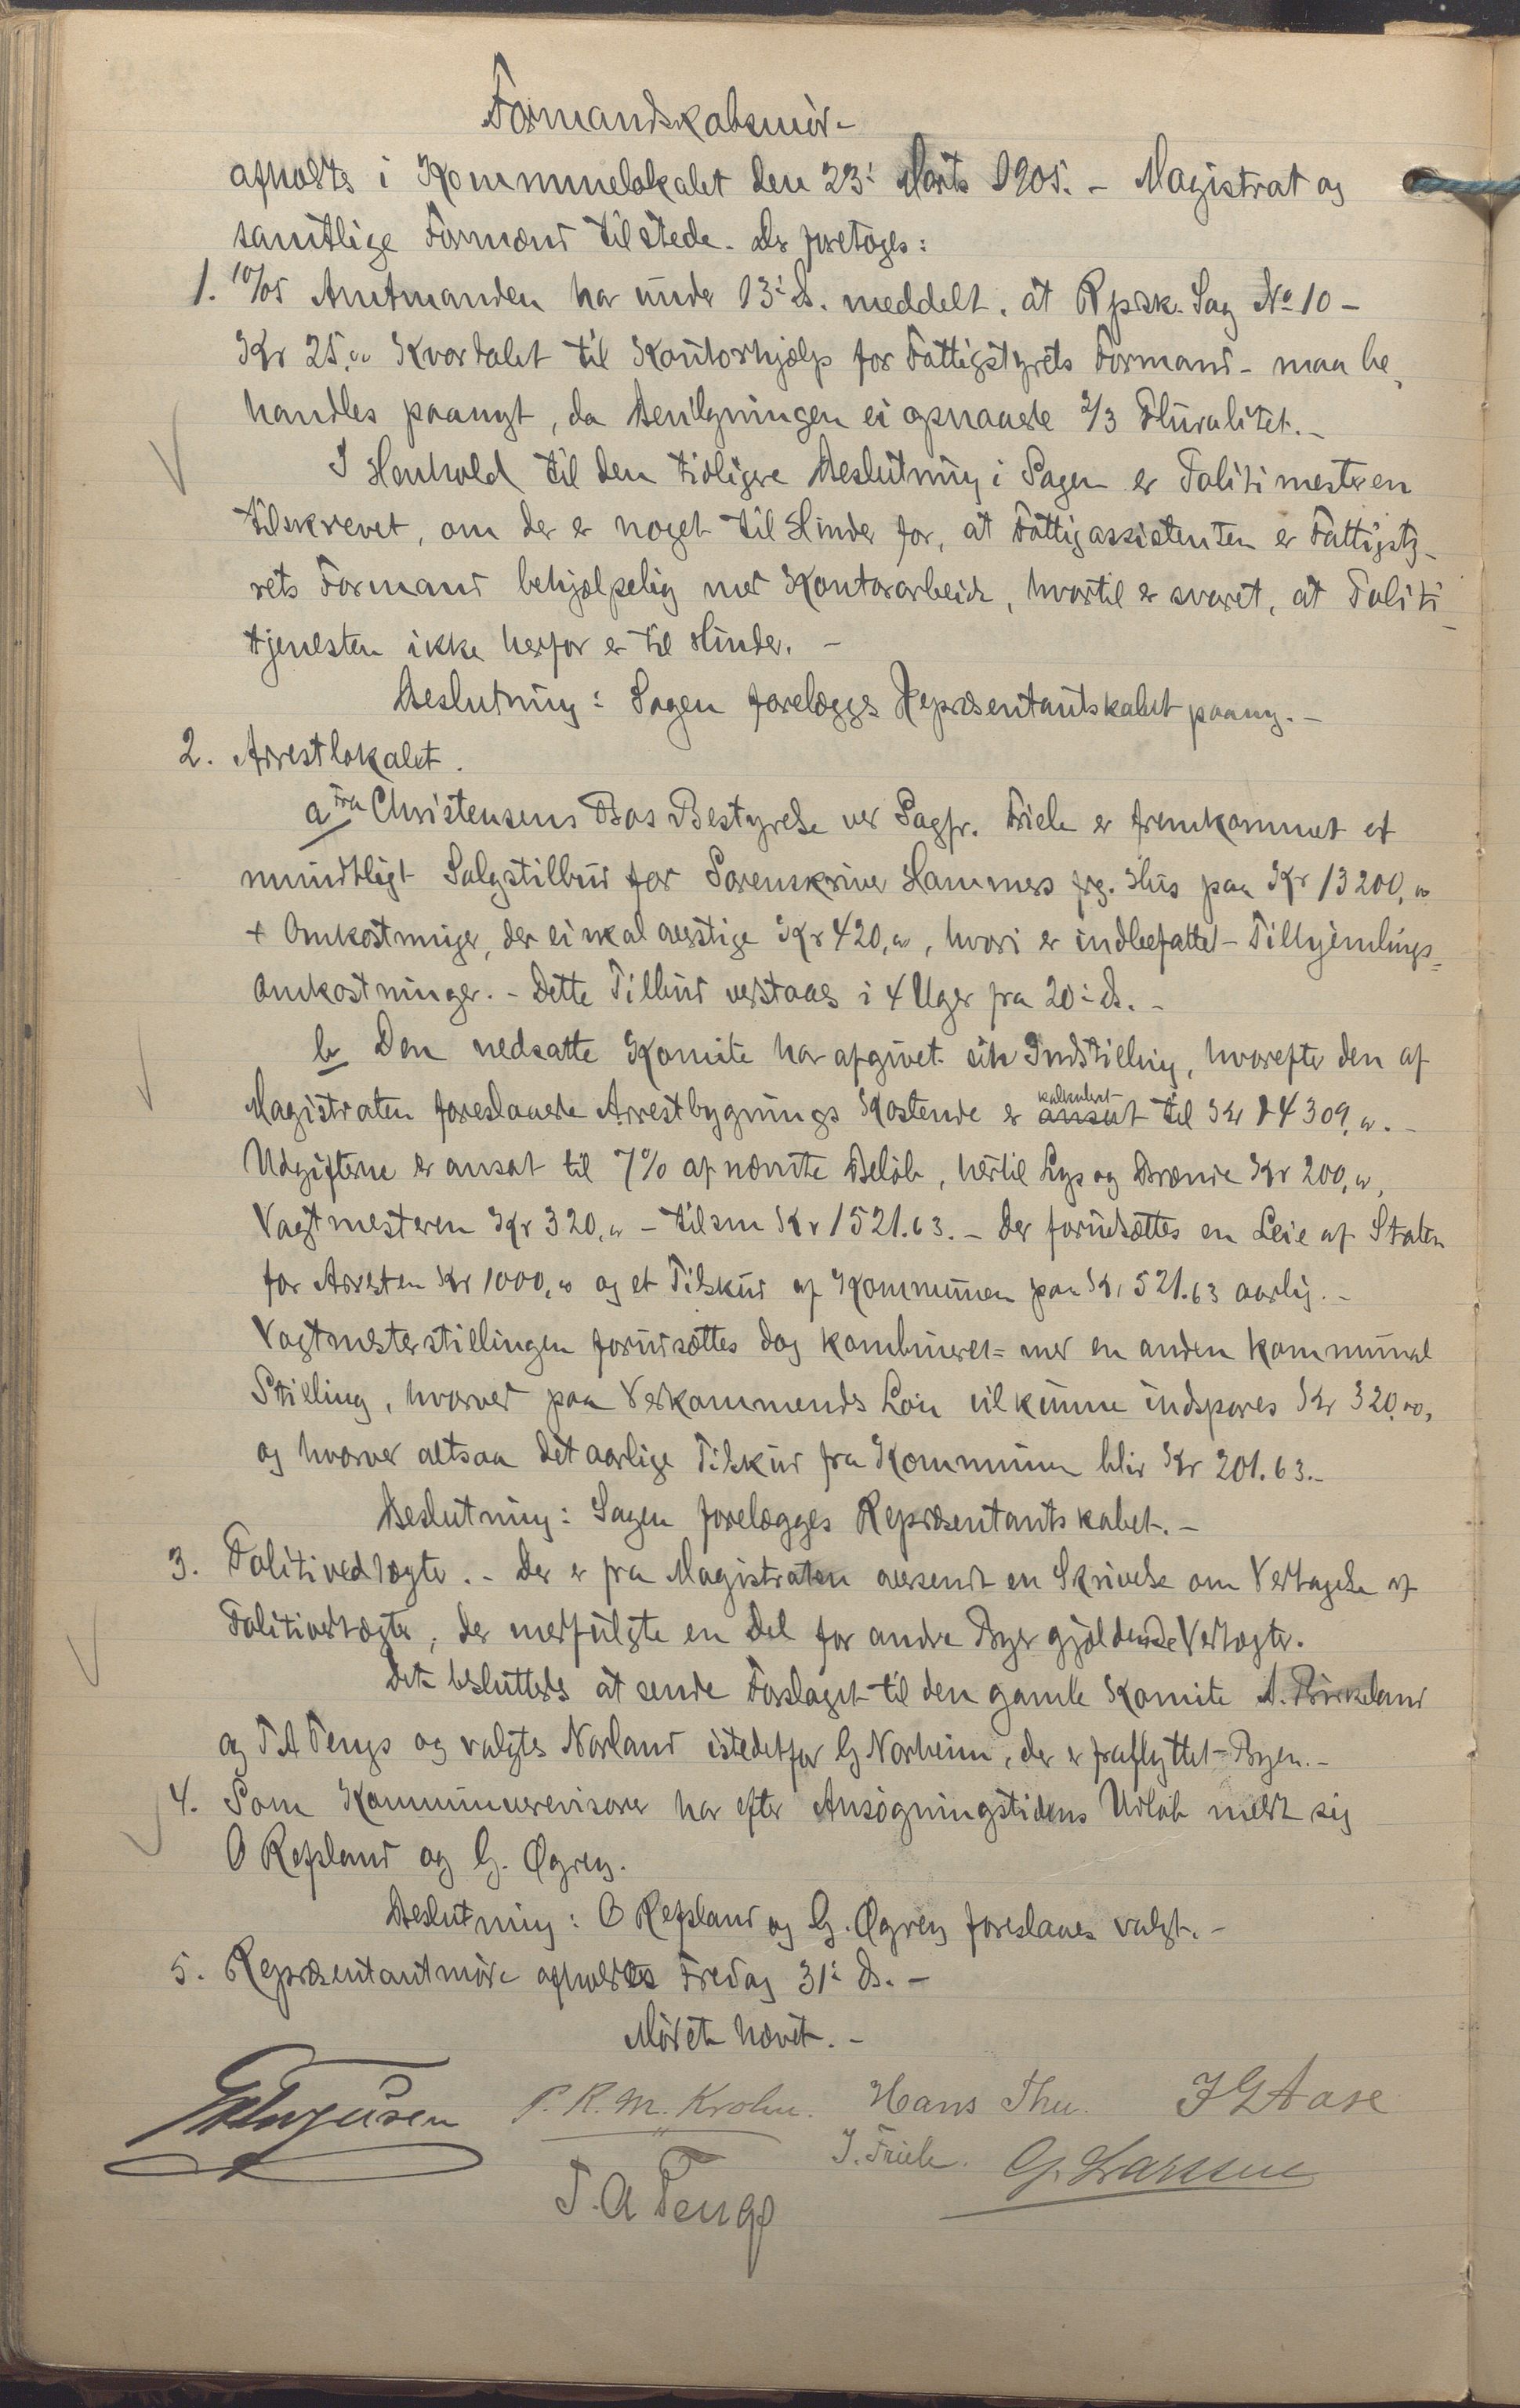 Formandskabsmøde
afholdtes i Kommunelokalet den 23' Marts 1905. – Magistrat og
samtlige Formænd tilstede. Der foretoges:
1. 10/05 Amtmanden har under 13' ds. meddelt, at Rpsk. Sag No 10 –
Kr 25,00 Kvartalet til Kontorhjælp for Fattigstyrets Formand – maa be-
handles paanyt, da Bevilgningen ei opnaaede 2/3 Pluralitet. –
I Henhold til den tidligere Beslutning i Sagen er Politimesteren
tilskrevet, om der er noget til Hinder for, at Fattigassistenten er Fattigsty-
rets Formand behjælpelig med Kontorarbeide, hvortil er svaret, at Politi-
tjenesten ikke herfor er til Hinder. –
Beslutning: Sagen forelægges Repræsentantskabet paany. –
2. Arrestlokalet.
a Fra Christensens Bos Bestyrelse ved Sagfr. Friele er fremkommet et
mundtligt Salgstilbud for Sorenskriver Hammers frg. Hus paa Kr 13200,00
+ Omkostninger, der ei skal overstige Kr 420,00, hvori er indbefattet Tilhjemlings-
omkostninger. – Dette Tilbud vedstaaes i 4 Uger fra 20' ds. –
b Den nedsatte Komite har afgivet sin Indstilling, hvorefter den af
Magistraten foreslaaede Arrestbygnings Kostende er ansat kalkuleret til Kr 14309,00. –
Udgifterne er ansat til 7% af nævnte Beløb, hertil Lys og Brænde Kr 200,00,
Vagtmesteren Kr 320,00 – tilsm Kr 1521.63. – Der forudsættes en Leie af Staten
for Arresten Kr 1000,00 og et Tilskud af Kommunen paa Kr 521.63 aarlig. –
Vagtmesterstillingen forudsættes dog kombineret med en anden kommunal
Stilling, hvorved paa Vedkommendes Løn vil kunne indspares Kr 320,00,
og hvorved altsaa det aarlige Tilskud fra Kommunen blir Kr 201.63. –
Beslutning: Sagen forelægges Repræsentantskabet. –
3. Politivedtægter. – Der er fra Magistraten oversendt en Skrivelse om Vedtagelse af
Politivedtægter, der medfulgte en Del for andre Byer gjældende Vedtægter.
Det besluttedes at sende Forslaget til den gamle Komite A. Birkeland
og T A Tengs og valgtes Norland istedetfor G Norheim, der er fraflyttet Byen. –
4. Som Kommunerevisorer har efter Ansøgningstidens Udløb meldt sig
O Refsland og G. Øgrey.
Beslutning: O Refsland og G. Øgrey foreslaaes valgt. –
5. Repræsentantmøde afholdes Fredag 31' ds. –
Mødet hævet. –
P. R. M. Krohn. Hans Thu. J G Aase
J. Friele. G. Larssen
T. A Tengs